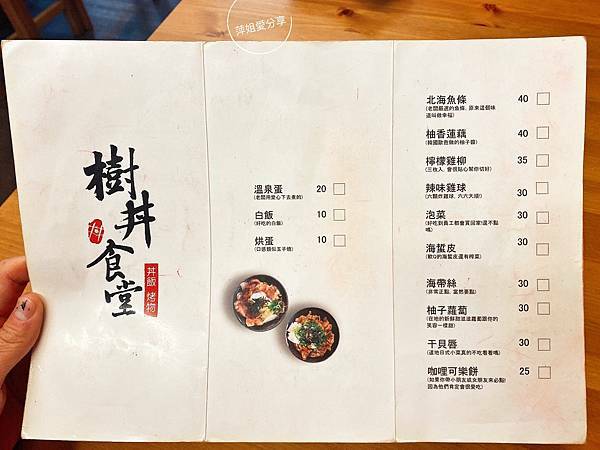 萍姐愛分享
樹丼食堂
丼
丼飯 烤物
溫泉蛋 20
(老闆用愛心下去煮的)
白飯 10
(好吃的白飯)
烘蛋 10
(口感類似玉子燒)
北海魚條 40
(老闆嚴選的魚條, 原來這個味
道叫做幸福)
柚香蓮藕 40
(韓國歐爸做的柚子醬)
檸檬雞柳 35
(三枚入, 會很貼心幫你切好)
辣味雞球 30
(六顆炸雞球, 六六大順)
泡菜 30
(好吃到員工都會買回家!還不點
嗎)
海蜇皮 30
(軟Q的海蜇皮還有榨菜)
海帶絲 30
(非常正點, 當然要點)
柚子蘿蔔 30
(在地的新鮮甜滋滋蘿蔔跟你的
笑容一樣甜)
干貝唇 30
(道地日式小菜真的不吃看看嗎)
咖哩可樂餅 25
(如果你帶小朋友或女朋友來必點!
因為他們肯定會很愛吃)